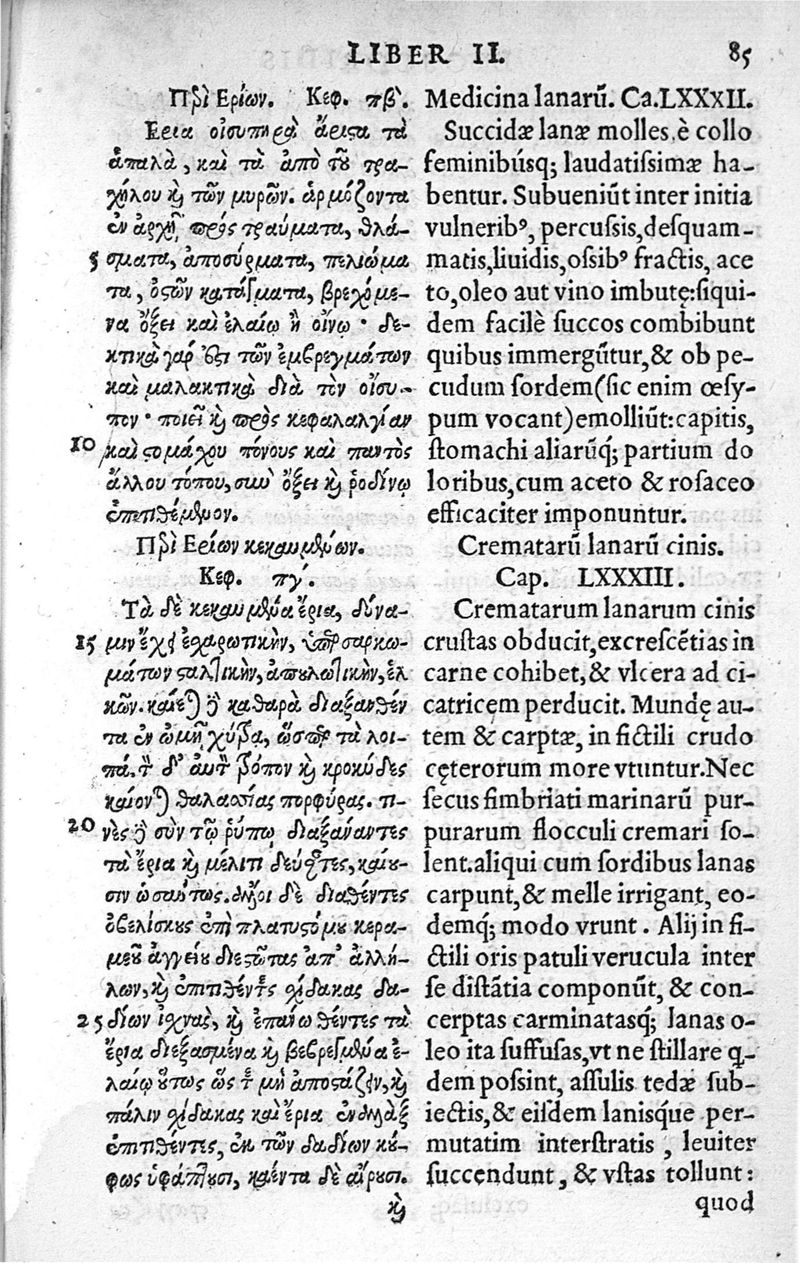 LIBER II. 85
Περὶ Ερίων. Κεφ. πβ΄.
Ερια οἰσυπηρὰ ἄριστα τὰ
ἁπαλὰ, καὶ τὰ ἀπὸ τοῦ τρα-
χήλου καὶ τῶν μυρῶν. ἁρμόζοντα
ἐν ἀρχῇ πρὸς τραύματα, θλά-
5 σματα, ἀποσύρματα, πελιώμα
τα, ὀστῶν κατάγματα, βρεχόμε-
να ὄξει καὶ ἐλαίῳ ἢ οἴνῳ · δε-
κτικὰ γάρ ἐστι τῶν ἐμβρεγμάτων
καὶ μαλακτικὰ διὰ τὸν οἴσυ-
πον · ποιεῖ καὶ πρὸς κεφαλαλγίαν
10 καὶ στομάχου πόνους καὶ παντὸς
ἄλλου τόπου, σὺν ὄξει καὶ ῥοδίνῳ
ἐπιτιθέμενον.
Περὶ Ερίων κεκαυμένων.
Κεφ. πγ΄.
Τὰ δὲ κεκαυμένα ἔρια, δύνα-
15 μιν ἔχει ἐσχαρωτικὴν, ὑπερσαρκω-
μάτων σταλτικὴν, ἀπουλωτικὴν, ἑλ
κῶν. καίεται δὲ καθαρὰ διαξανθέν
τα ἐν ὠμῇ χύτρᾳ, ὥσπερ τὰ λοι-
πά. τὸν δ' αὐτὸν τρόπον καὶ κροκύδες
καίονται θαλασσίας πορφύρας. τι-
20 νὲς δὲ σὺν τῷ ῥύπῳ διαξάναντες
τὰ ἔρια καὶ μέλιτι δεύσαντες, καίου-
σιν ὡσαύτως. ἔνιοι δὲ διαθέντες
ὀβελίσκους ἐπὶ πλατυστόμου κερα-
μεοῦ ἀγγείου διεστῶτας ἀπ' ἀλλή-
λων, καὶ ἐπιτιθέντες σχίδακας δα-
25 δίων ἰσχνὰς, καὶ ἐπάνω θέντες τὰ
ἔρια διεξασμένα καὶ βεβρεγμένα ἐ-
λαίῳ οὕτως ὥς τε μὴ ἀποστάζειν, καὶ
πάλιν σχίδακας καὶ ἔρια ἐναλλὰξ
ἐπιτιθέντες, ἐκ τῶν δαδίων κού-
φως ὑφάπτουσι, καέντα δὲ αἴρουσι.
καὶ
Medicina lanarū. Ca.LXXXII.
Succidæ lanæ molles, è collo
feminibúsq; laudatiſsimæ ha-
bentur. Subueniūt inter initia
vulneribꝰ, percuſsis, deſquam-
matis, liuidis, oſsibꝰ fractis, ace
to, oleo aut vino imbutę: ſiqui-
dem facilè ſuccos combibunt
quibus immergūtur, & ob pe-
cudum ſordem (ſic enim œſy-
pum vocant) emolliūt: capitis,
ſtomachi aliarūq; partium do
loribus, cum aceto & roſaceo
efficaciter imponuntur.
Crematarū lanarū cinis.
Cap. LXXXIII.
Crematarum lanarum cinis
cruſtas obducit, excreſcētias in
carne cohibet, & vlcera ad ci-
catricem perducit. Mundę au-
tem & carptæ, in fictili crudo
cęterorum more vtuntur. Nec
ſecus fimbriati marinarū pur-
purarum flocculi cremari ſo-
lent. aliqui cum ſordibus lanas
carpunt, & melle irrigant, eo-
demq; modo vrunt. Alij in fi-
ctili oris patuli verucula inter
ſe diſtātia componūt, & con-
cerptas carminatasq; lanas o-
leo ita ſuffuſas, vt ne ſtillare q-
dem poſsint, aſſulis tedæ ſub-
iectis, & eiſdem laniſque per-
mutatim interſtratis, leuiter
ſuccendunt, & vſtas tollunt:
quod